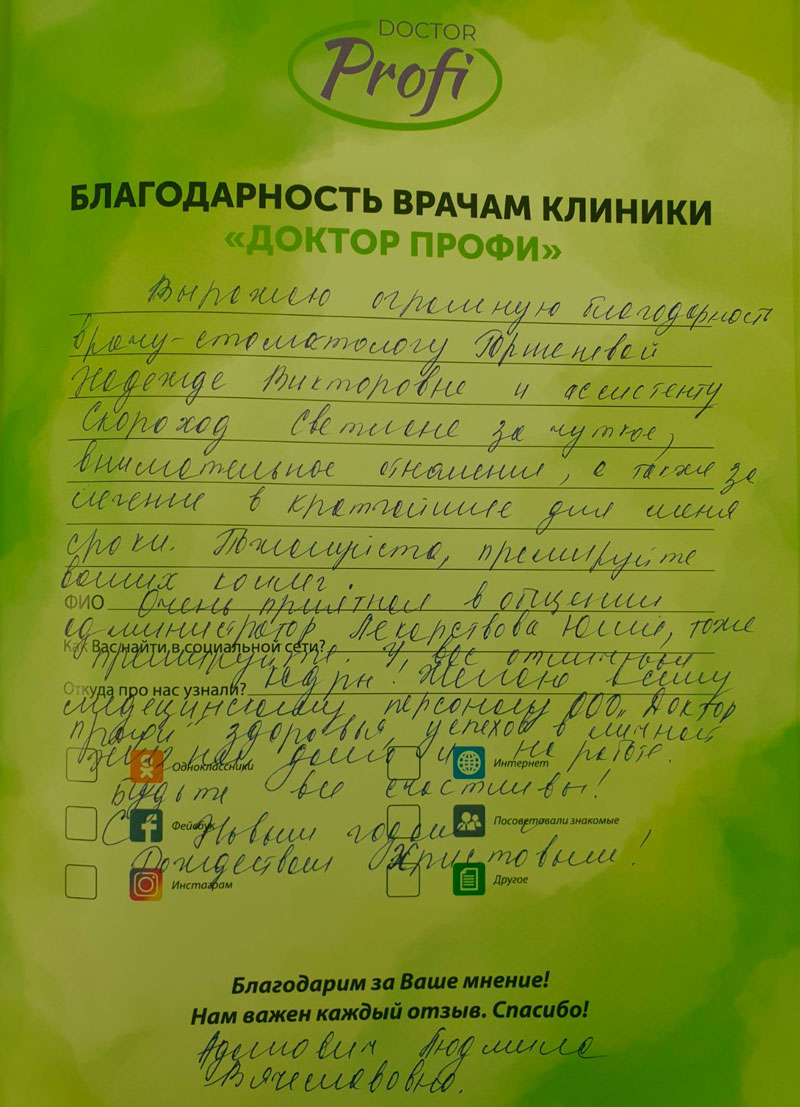 DOCTOR
Profi
БЛАГОДАРНОСТЬ ВРАЧАМ КЛИНИКИ
«ДОКТОР ПРОФИ»
Выражаю огромную благодарность
врачу-стоматологу Горшеневой
Надежде Викторовне и ассистенту
Скороход Светлане за чуткое,
внимательное отношение, а также за
лечение в кратчайшие для меня
сроки. Пожалуйста, премируйте
ваших коллег.
ФИО Очень приятная в общении
администратор Лекарствова Юлия, тоже
Как Вас найти в социальной сети?
премируйте. У вас отличный
Откуда про нас узнали?
Желаю всему
медецинскому персоналу ООО „Доктор
профи" здоровья, успехов в личной
жизни дома и на работе.
Одноклассники
Интернет
Будьте все счастливы!
Фейсбук
Посоветовали знакомые
С Новым годом и
Рождеством Христовым!
Инстаграм
Другое
Благодарим за Ваше мнение!
Нам важен каждый отзыв. Спасибо!
Адамович Людмила
Вячеславовна.